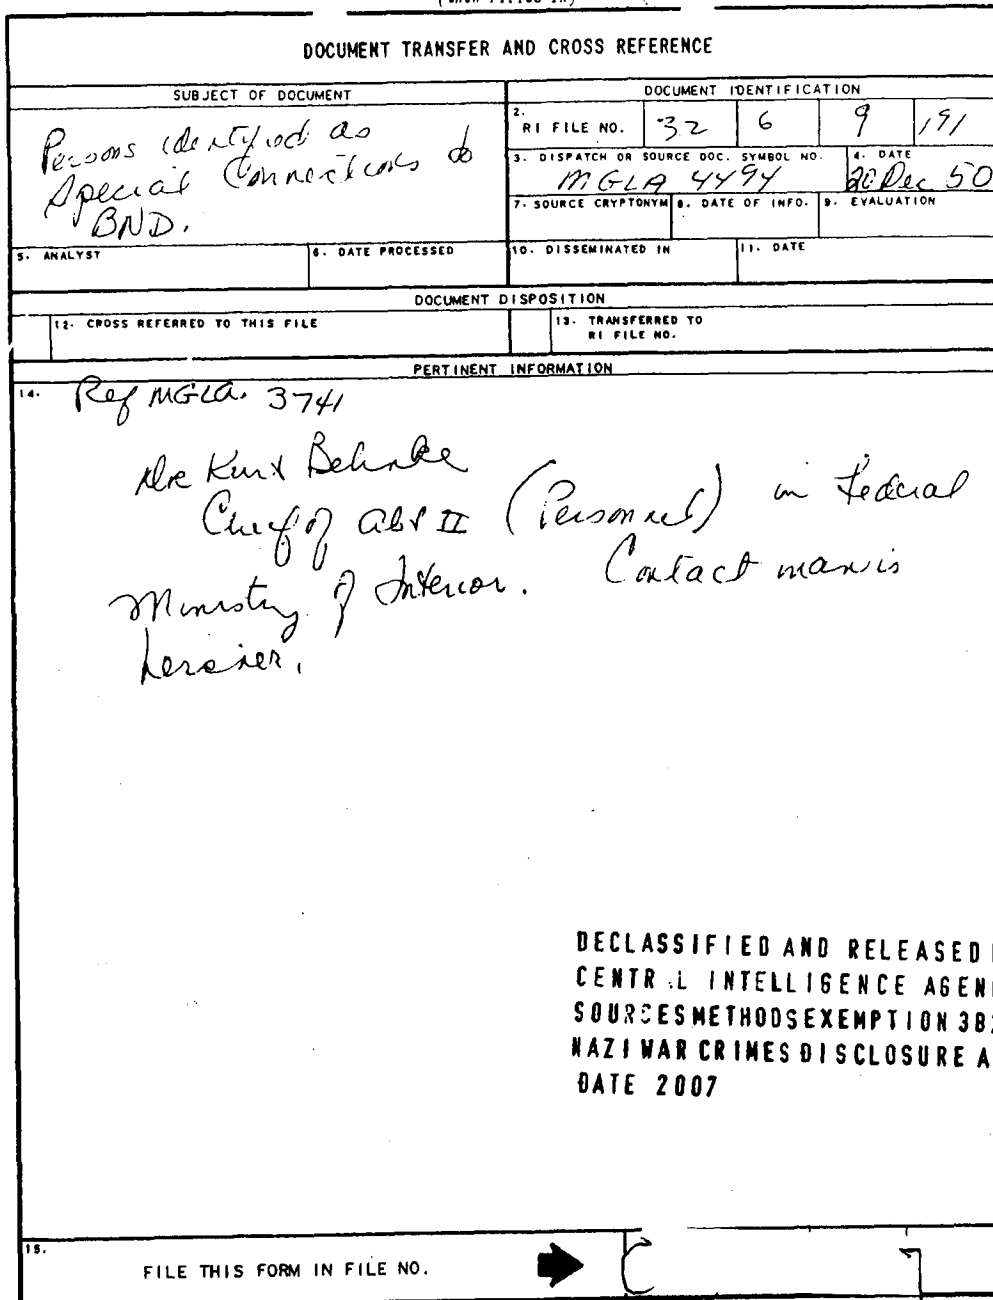 DOCUMENT TRANSFER AND CROSS REFERENCE
SUBJECT OF DOCUMENT
DOCUMENT IDENTIFICATION
Persons identified as
Special Connections to
BND.
2.
RI FILE NO.
32 6 9 191
3. DISPATCH OR SOURCE DOC. SYMBOL NO.
MGLA 4494
4. DATE
20 Dec 50
7. SOURCE CRYPTONYM
8. DATE OF INFO.
9. EVALUATION
5. ANALYST
6. DATE PROCESSED
10. DISSEMINATED IN
11. DATE
DOCUMENT DISPOSITION
12. CROSS REFERRED TO THIS FILE
13. TRANSFERRED TO
RI FILE NO.
PERTINENT INFORMATION
14.
Ref MGLA. 3741
Kurt Behnke
Chief of Abt II (Personnel) in Federal
Ministry of Interior. Contact man is
DECLASSIFIED AND RELEASED
CENTR L INTELLIGENCE AGEN
SOURCESMETHODSEXEMPTION 3B
NAZI WAR CRIMES DISCLOSURE A
DATE 2007
15.
FILE THIS FORM IN FILE NO.